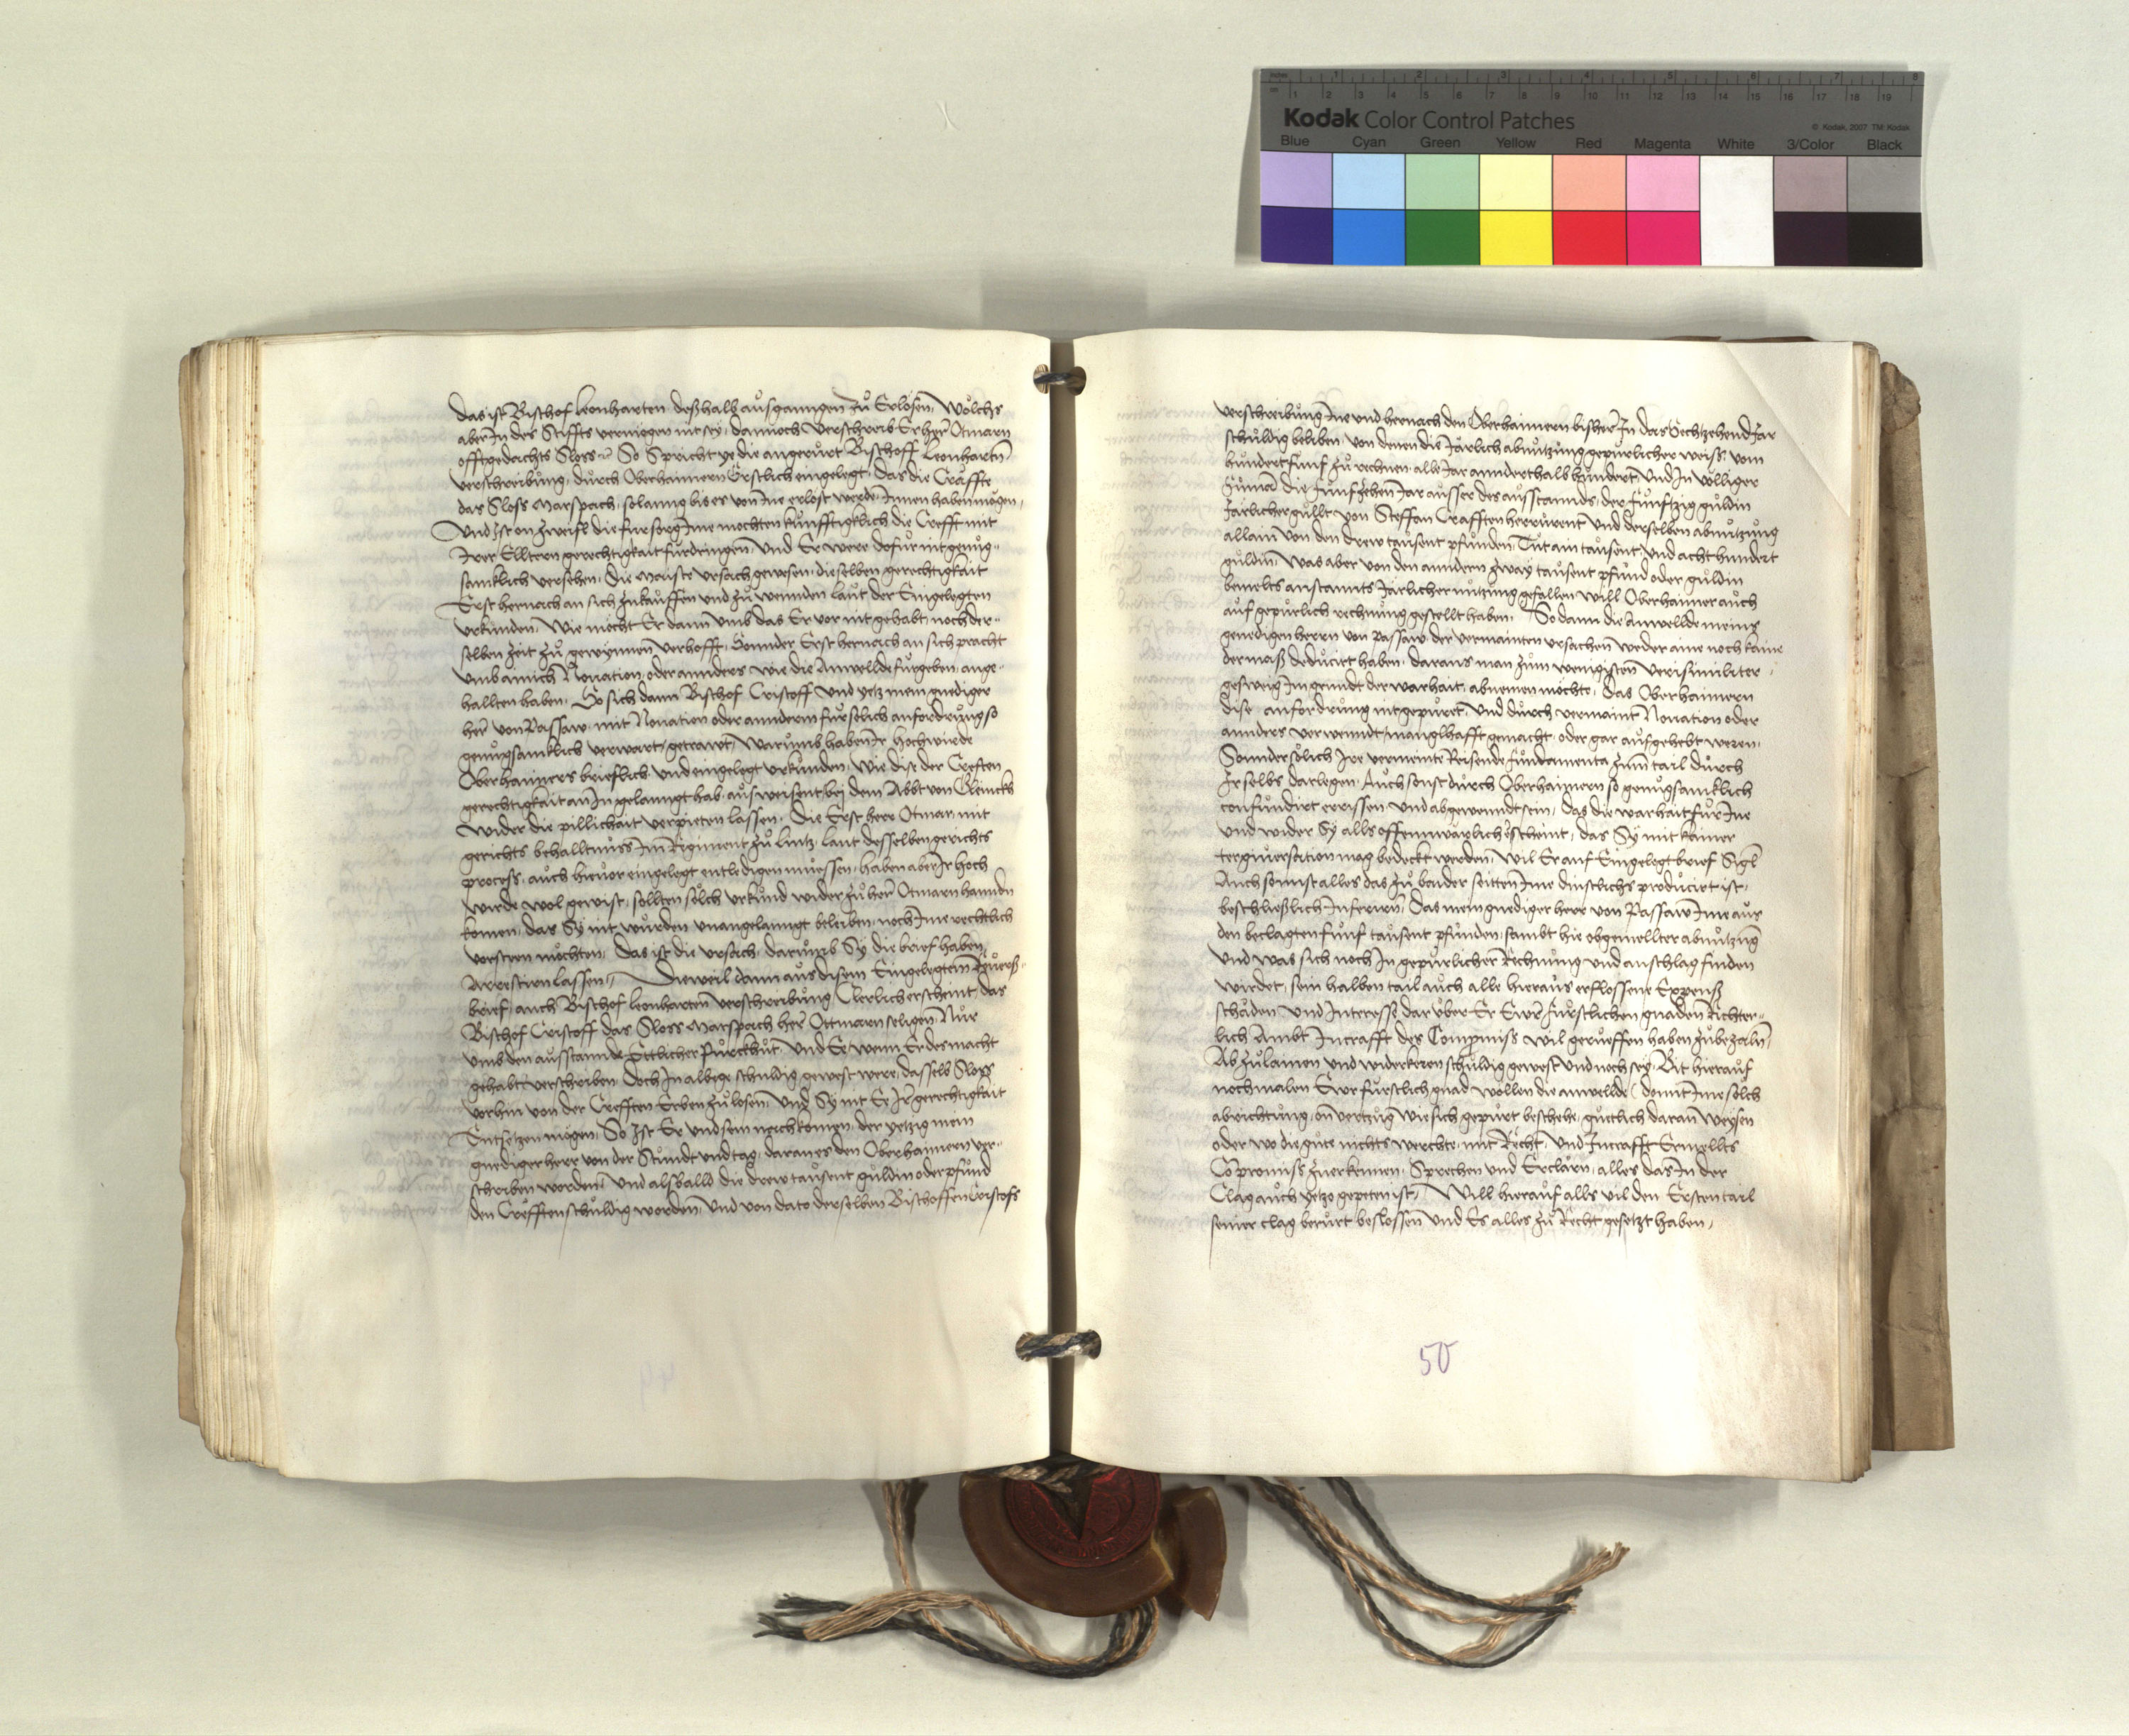 inches 1 2 3 4 5 6 7 8
cm 1 2 3 4 5 6 7 8 9 10 11 12 13 14 15 16 17 18 19
Kodak Color Control Patches
© Kodak, 2007 TM: Kodak
Blue Cyan Green Yellow Red Magenta White 3/Color Black
das ist Bischof Leonharten deßhalb ausganngen zu Erlosen, Wolchs
aber In des Stiffts vermogen nit sey, dannoch Verschreib Er herr Otmarn
offtgedachts Sloss So Spricht ye die angerurt Bischoff Leonhartn
verschreibung, durch Oberhaimern Erstlich eingelegt, das die Craffte
das Sloss Marspach, solanng bis es von Ine erlost werde, Innen haben mogen,
Und Ist on zweifl die fursorg Ime mochten kunfftigklich die Crefft mit
Irer Elltern gerechtigkait furdringen, Und Er were dofur nit genug-
samklich versehen, die maiste ursach gewesen, dieselben gerechtigkait
Erst hernach an sich zukauffen und zu wennden laut der Eingelegten
urkunden, Wie mocht Er dann umb das Er vor nit gehabt, noch der-
selben zeit zu gewynnen verhofft, Sonnder Erst hernach an sich pracht
umb ainich Novation, oder annders wie die Anwellde furgeben, ange-
hallten haben, So sich dann Bischof Cristoff und yetz mein gnediger
herr von Passaw, mit Novation oder annderm furselich anfordrung so
genugsamklich verwart, getrawt, Warumb haben Ir hochwirde
Oberhaimers brieflich und eingelegt urkunden, Wie dise der Creften
gerechtigkait an In gelanngt hab, ausweisent, bej dem Abbt von Gleinckh
Wider die pillichait verpieten lassen, die Erst herr Otmar, mit
gerichts behalltnuss Im Regiment zu Linntz, laut desselben gerichts
process, auch hievor eingelegt entledigen muessen, haben aber Ir hoch
wirde wol gewist, sollten solch urkund wider zu herr Otmarn hannden
komen, das Sy nit wurden unangelanngt beleiben, noch Ime rechtlich
vorsteen mochten, Das ist die ursach, darumb Sy die brief haben
Arrestirn lassen, Dieweil dann aus disem Eingelegtem
brief, auch Bischof Leonharten verschreibung Clerlich erscheint, das
Bischof Cristoff das Sloss Marspach herr Ottmarn seligen, Nur
umb den ausstannde Ettlicher Purckhut, Und Er wenn Er des macht
gehabt verschriben, doch In albege schuldig gewest were, dasselb Sloss
vorhin von der Crefften Erben zu losen, Und Sy nit Er Ir gerechtigkait
Entsetzen mogen, So Ist Er und sein nachkomen, der yetzig mein
gnediger herr von der Stundt und tag, daran es den Oberhaimern ver-
schriben worden, Und alsballd die drew tausent guldin oder pfund
den Crefften schuldig worden, Und von dato derselben Bischoffen Cristofs
verschreibung Ine und hernach den Oberhaimern bisher In das Sechtzehend Jar
schuldig beliben, von denen die Jarlich abnutzung gepurlicher weiss vom
hundert funf zu rechnen, alle Jar annderthalb hundert, Und In volliger
Summa die funfzehen Jar ausser des ausstannds, der funftzig guldin
Jarlicher gullt von Steffan Crafften herrurent und derselben abnutzung
allain von den drew tausent pfunden, Tut ain tausent, und acht hundert
guldin, Was aber von den anndern zway tausent pfund oder guldin
bemelts anstannts Jarlicher nutzung gefallen will Oberhaimer auch
auf gepurlich rechnung gestellt haben, So dann die Anwellde meins
genedigen herrn von Passaw der vermainten ursachen weder aine noch kaine
dermass deducirt haben, daraus man zum wenigisten verisimiliter,
gesweig Im grundt der warhait, abnemen mochte, das Oberhaimern
dise anfordrung nit gepuret, Und durch vermaint Novation oder
annders verwenndt, manglhafft gemacht, oder gar aufgehebt weren,
Sonnder solich Ire vermeinte Reisende fundamenta zum tail durch
Ir selbs darlegen, Auch sonst durch Oberhaimern so genugsamklich
confundirt, errissen, und abgewenndt sein, das die warhait fur Ine
und wider Sy alls offennwarlich erscheint, das Sy mit kainer
tergiversation mag bedeckt werden, Wil Er auf Eingelegt brief Sigl
Auch sonnst alles das zu baider seitten Ime dinstlichs producirt ist,
beschließlich Inferirn, Das mein gnediger herr von Passaw Ime aus
den beclagten funf tausent pfunden, sambt hie obgemellter abnutzung
und was sich noch In gepurlicher Rechnung und anschlag finden
wirdet, sein halben tail auch alle hieraus erflossene Expenß
schaden und Interesse darüber Er Ewr furstlichen gnaden Richter-
lich Ambt In crafft des Compromiss wil gerueffen haben zubezaln,
Abzulainen und widerkeren schuldig gewest und noch sey, Bit hierauf
nochmalen Ewr furstlich gnad wollen die anwellde (domit Ime solch
abrichtung, on vertzug wie sich gepurt beschehe, gutlich daran Weysen
oder wo die gute nichts werchte, mit Recht, Und In crafft Ermellts
Compromiss zuerkennen, Sprechen und Erclarn, alles das In der
Clag auch yetzo gepeten ist, Will hierauf alls vil den Ersten tail
seiner clag berurt beslossen und Es alles zu Recht gesetzt haben,
50